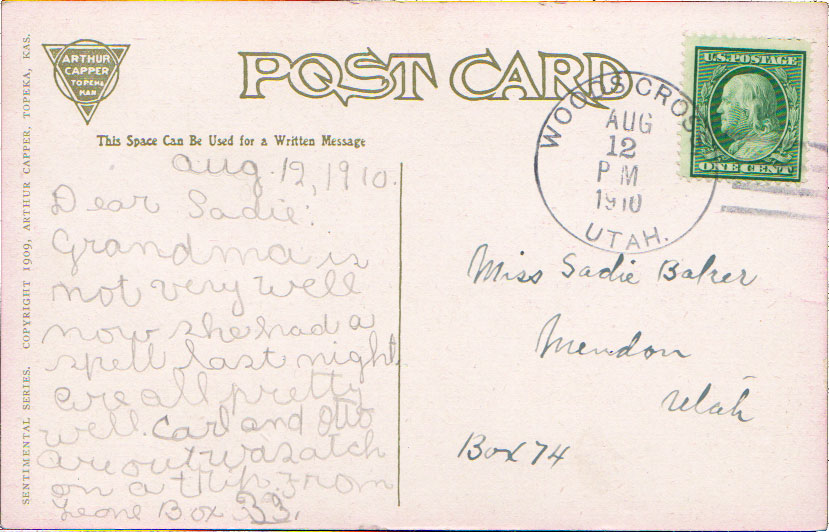 ARTHUR
CAPPER
TOPEKA
KAN
POST CARD
This Space Can Be Used for a Written Message
SENTIMENTAL SERIES. COPYRIGHT 1909, ARTHUR CAPPER, TOPEKA, KAS.
WOODS CROSS
AUG
12
PM
1910
UTAH.
U.S. POSTAGE
ONE CENT
Aug. 12, 1910.
Dear Sadie:
Grandma is
not very well
now she had a
spell last night.
are all pretty
well. Carl and Otto
are out wasatch
on a trip. From
Leone Box 33.
Miss Sadie Baker
Mendon
Utah
Box 74